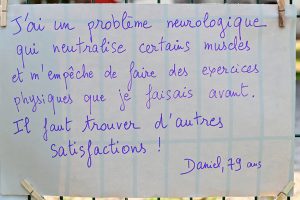 J'ai un problème neurologique
qui neutralise certains muscles
et m'empêche de faire des exercices
physiques que je faisais avant.
Il faut trouver d'autres
satisfactions !
Daniel, 79 ans